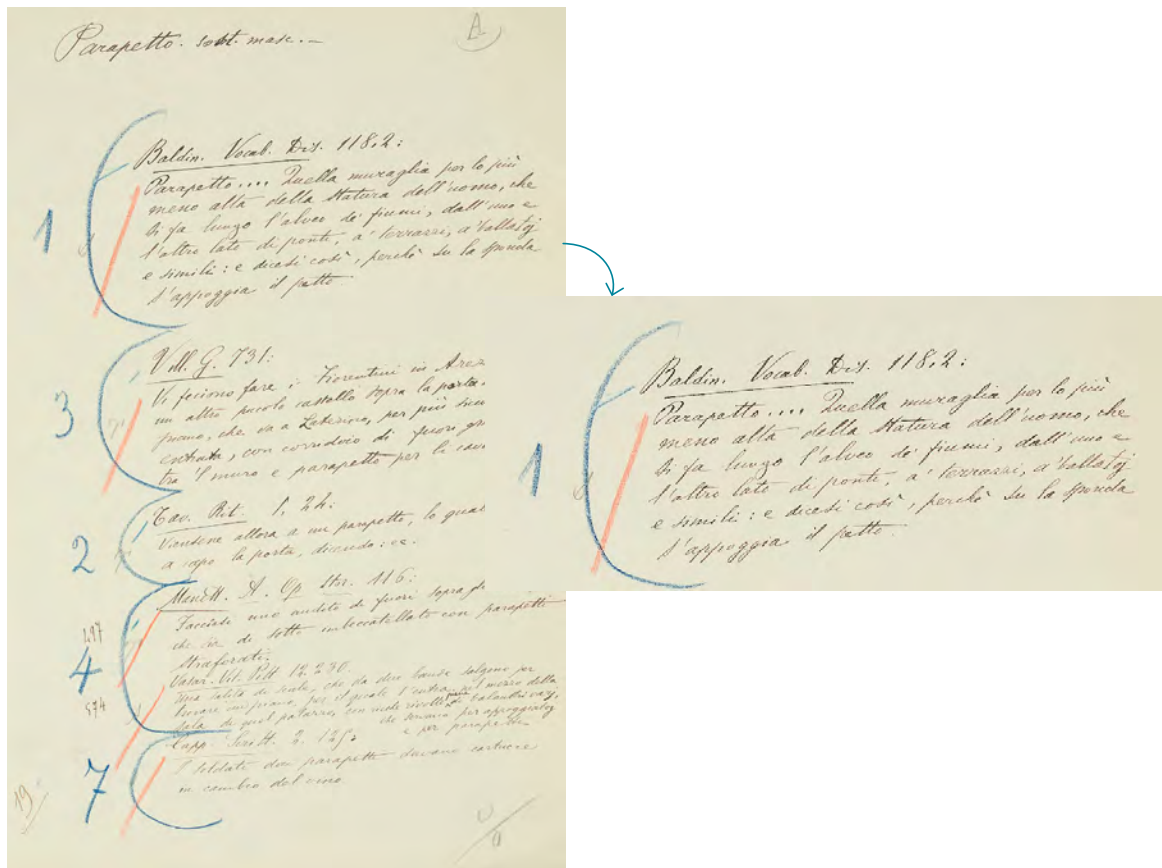 Parapetto. sost. masc. —
A
Baldin. Vocab. Dis. 118,2:
Parapetto.... Quella muraglia per lo più
meno alta della statura dell'uomo, che
si fa lungo l'alveo de' fiumi, dall'uno e
l'altro lato di ponti, a' terrazzi, a' ballatoj
e simili: e dicesi così, perchè su la sponda
s'appoggia il petto.
1
Vill. G. 731:
Vi feciono fare i Fiorentini in Arez
un altro piccolo castello sopra la porta,
piano, che va a Laterino, per più
entrata, con corridoio di fuori
tra 'l muro e parapetto per li
3
Tav. Rit. 1, 24:
Viensene allora a un parapetto, lo qual
a capo la porta, dicendo: ec.
2
Manett. A. Op. Stor. 116:
Facciasi uno andito di fuori sopra
che di sotto imbeccatellato con parapetti
straforati.
197
4
Vasar. Vit. Pitt. 12. 230.
Una salita di scale, che da due bande salgono per
trovare un piano, per il quale l'entra nel mezzo della
sala di quel palazzo, con molte rivolte piene di balaustri varj,
che servono per appoggiatoj
e per parapetto
574
Capp. Scritt. 2. 125:
I soldati dai parapetti davano cartucce
in cambio del vino
7
19
Baldin. Vocab. Dis. 118,2:
Parapetto.... Quella muraglia per lo più
meno alta della statura dell'uomo, che
si fa lungo l'alveo de' fiumi, dall'uno e
l'altro lato di ponti, a' terrazzi, a' ballatoj
e simili: e dicesi così, perchè su la sponda
s'appoggia il petto.
1